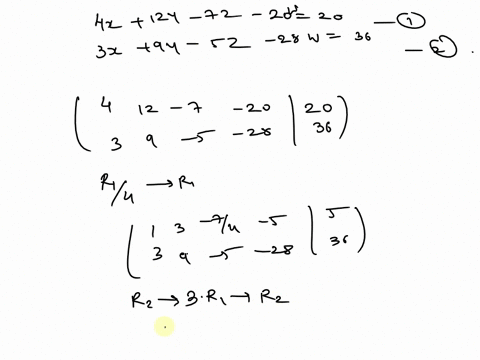 4x + 12y - 7z - 20 = 20 — ①
3x + 9y - 5z - 28w = 36 — ②.
( 4 12 -7 -20 | 20 )
( 3 9 -5 -28 | 36 )
R1/4 → R1
( 1 3 -7/4 -5 | 5 )
( 3 9 -5 -28 | 36 )
R2 → 3·R1 → R2